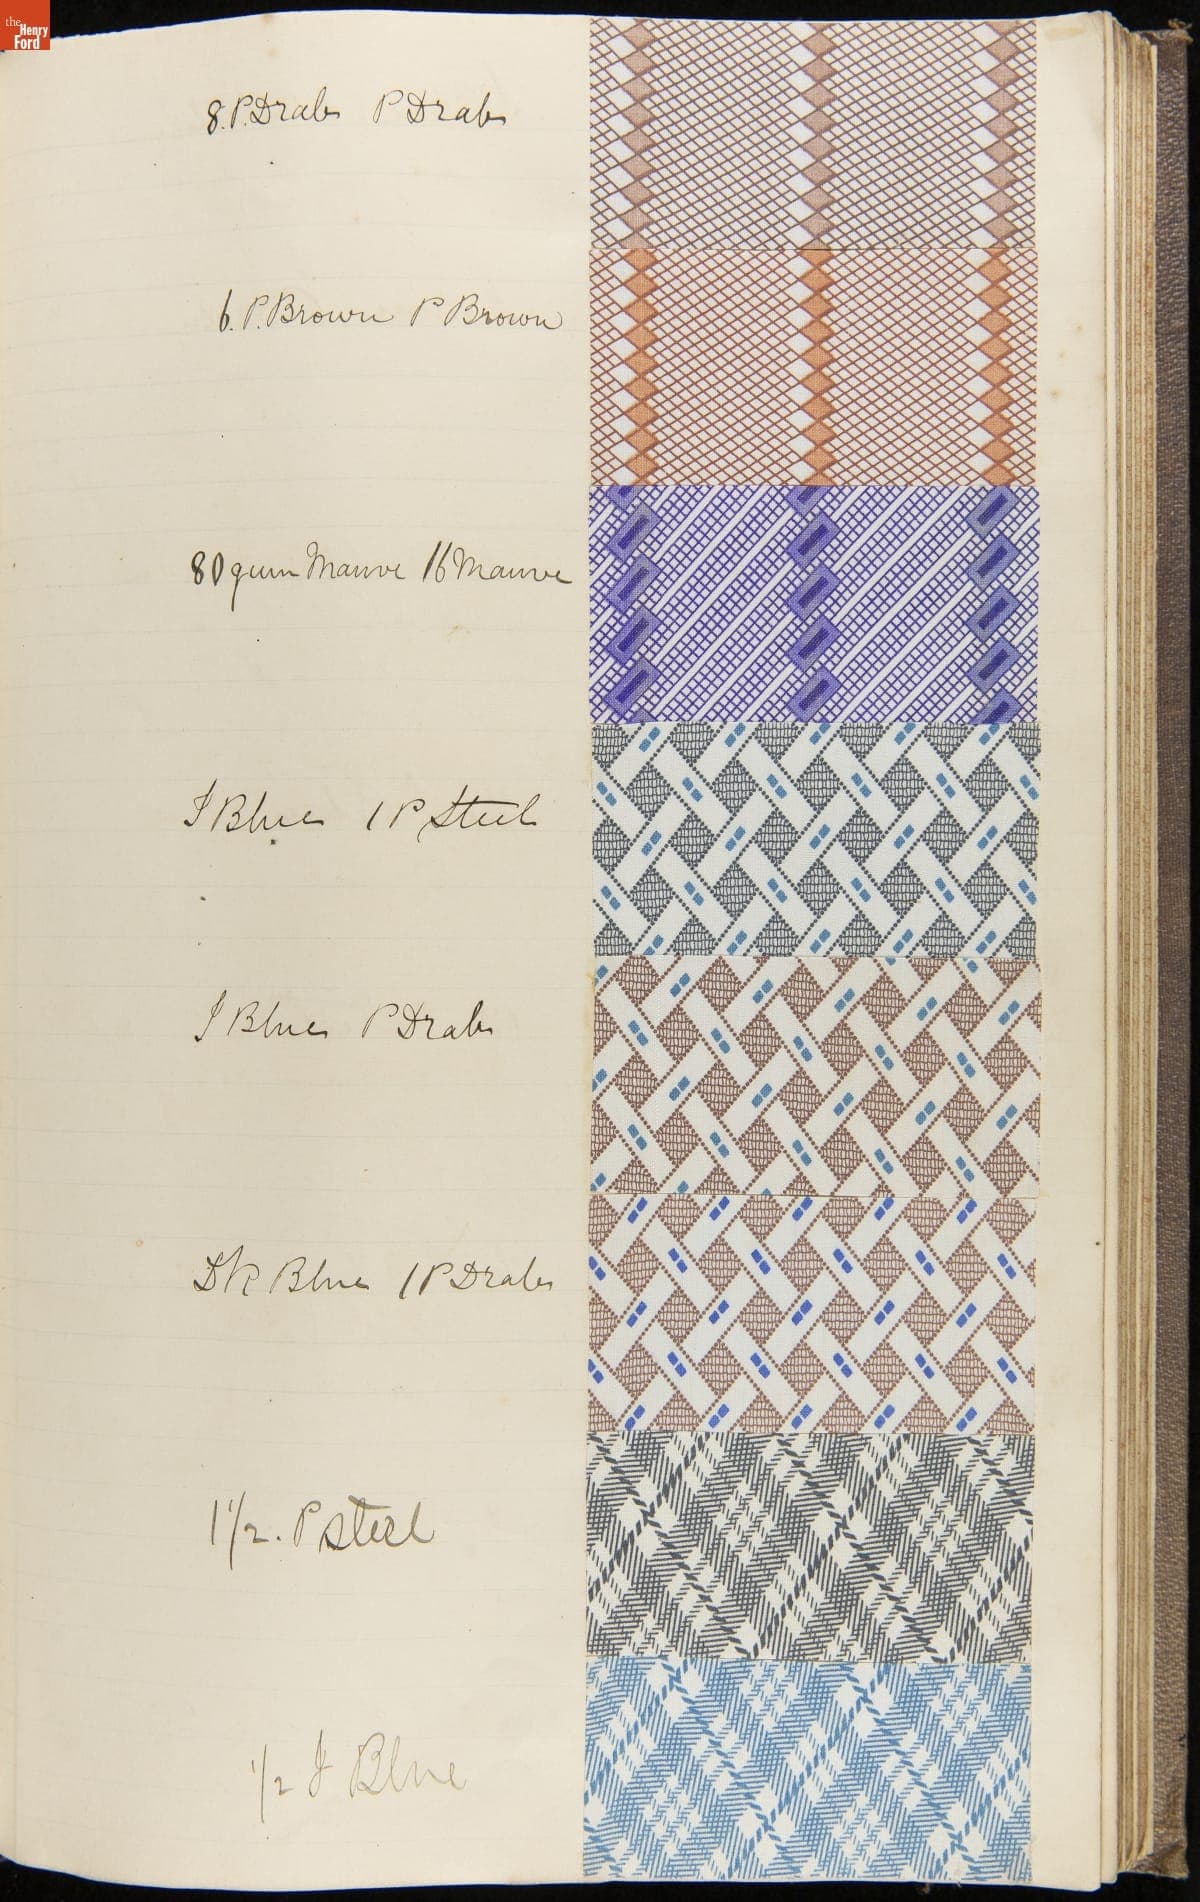 the
Henry
Ford
8. P. Drab P Drab
6. P. Brown P Brown
80 gum Mauve 16 Mauve
J Blue 1 P Steel
J Blue P Drab
DK Blue 1 P Drab
1 1/2 . P Steel
1/2 J Blue